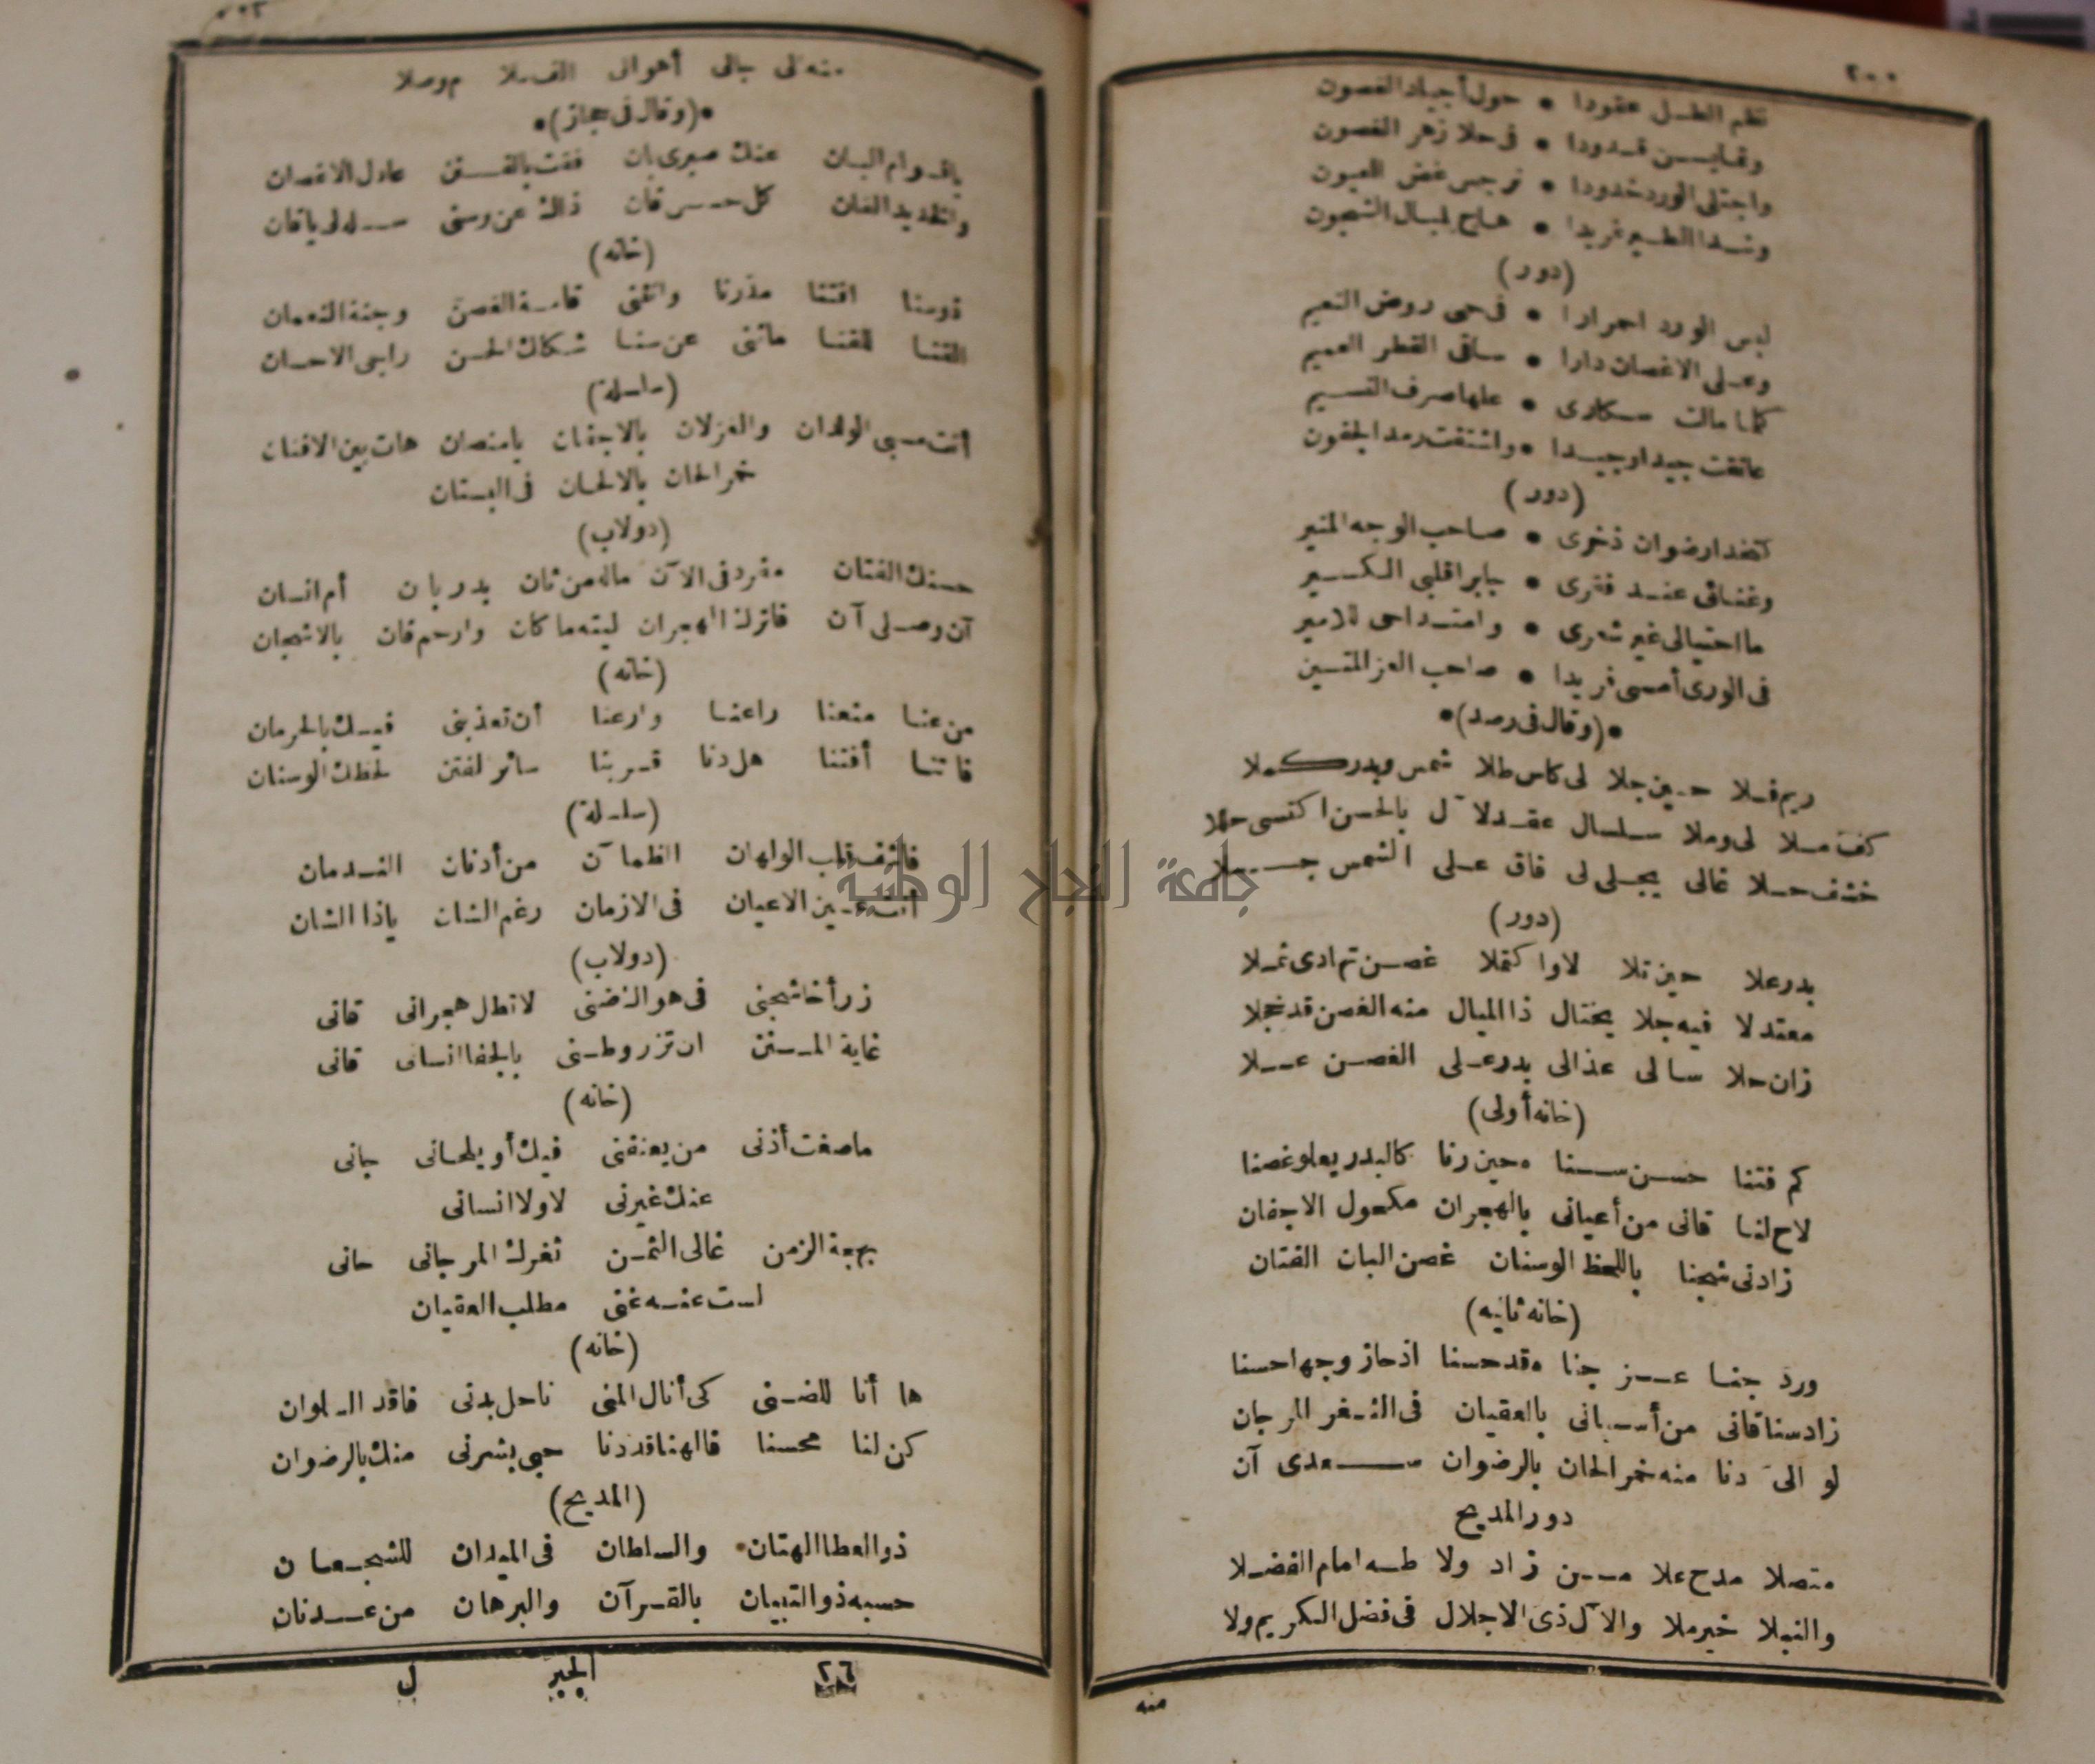 ٢٠٠
نظم الطل عقودا • حول أجياد الغصون
وتمايسن قدودا • فى حلا زهر الغصون
واجتلى الورد خدودا • نرجس غض العيون
وشدا الطير غريدا • هاج لبال الشجون
(دور)
لبس الورد احمرارا • فى حمى روض النعيم
وعلى الاغصان دارا • ساقى القطر العميم
كلما مالت سكارى • علها صرف النسيم
عانقت جيدا وجيدا • واشتفت رمد الجفون
(دور)
كتخدا رضوان ذخرى • صاحب الوجه المنير
وغنائى عند فقرى • جابرا قلبى الكسير
ما احتيالى غير شعرى • وامتداحى للامير
فى الورى أمسى فريدا • صاحب العز المتين
•(وقال فى رصد)•
ريم فلا حين جلا لى كاس طلا شمس وبدر كملا
كفت ملا لى وملا سلسال عقد لآل بالحسن اكتسى حللا
خشف حلا غالى يجلى لى فاق على الشمس جلا
(دور)
بدر علا حين تلا لاوا كتملا غصن تمادى ثملا
معتدلا فيه جلا يختال ذا الميال منه الغصن قد خجلا
زان حلا سالى عذالى بدر على الغصن علا
(خانه أولى)
كم فتنا حسن سنا وحين رنا كالبدر يعلو غصنا
لاح لنا قانى من أعيانى بالهجران مكحول الاجفان
زادنى شجنا باللحظ الوسنان غصن البان الفتان
(خانه ثانيه)
ورد جنا عز جنا وقد حسنا اذ حاز وجها حسنا
زاد سنا قانى من أسبانى بالعقيان فى الثغر المرجان
لو الىّ دنا منه خمر الحان بالرضوان سعدى آن
دور المديح
متصلا مدح علا من زاد ولا طه امام الفضلا
والنبلا خير ملا والآل ذى الاجلال فى فضل الكريم ولا
منه
منه الى بالى أهوالى الفلا موصلا
•(وقال فى حجاز)•
ياقوام البان عنك صبرى بان ففت بالفتن عادل الاغصان
والخديد القان كل حسن فان ذاك عن وسنى سله لى ياقان
(خانه)
قومنا افتنا مذرنا وانثنى قامة الغصن وجنة النعمان
القنا للفنا ما ثنى عن سنا شكلك الحسن رابى الاحسان
(سلسلة)
أنت مسبى الولدان والغزلان بالاجفان يا منصان هات بين الافنان
خمر الحان بالالحان فى البستان
(دولاب)
حسنك الفتان مفرد فى الآن ماله من ثان بدر بان أم انسان
آن وصلى آن فاترك الهجران ليته ما كان وارحم قان بالاشجان
(خانه)
من عنا متعنا راعنا وارعنا أن تعذبنى فيك بالحرمان
فاتنا أفتنا هل دنا قربنا سائر لفتن لحظك الوسنان
(سلسلة)
فاشف قلب الولهان الظمآن من أدنان الندمان
أنت عين الاعيان فى الازمان رغم الشان ياذا الشان
جامعة النجاح الوطنية
(دولاب)
زر أخا شجنى فى هواك ضنى لا تطل هجرانى قانى
غاية المنن ان تزر وطنى بالجفا انسانى قانى
(خانه)
ما صغت أذنى من يعنفنى فيك أو يلحانى جانى
عنك غيرنى لا ولا انسانى
بهجة الزمن غالى الثمن ثغرك المرجانى حانى
لست عنه غنى مطلب العقيان
(خانه)
ها أنا للضنى كى أنال المنى ناحل بدنى فاقد السلوان
كن لنا محسنا فالهنا قد دنا حبى بشرنى منك بالرضوان
(المديح)
ذو العطا الهتان والسلطان فى الميدان للشجعان
حسبه ذو التبيان بالقرآن والبرهان من عدنان
٢٦ الجبر ل